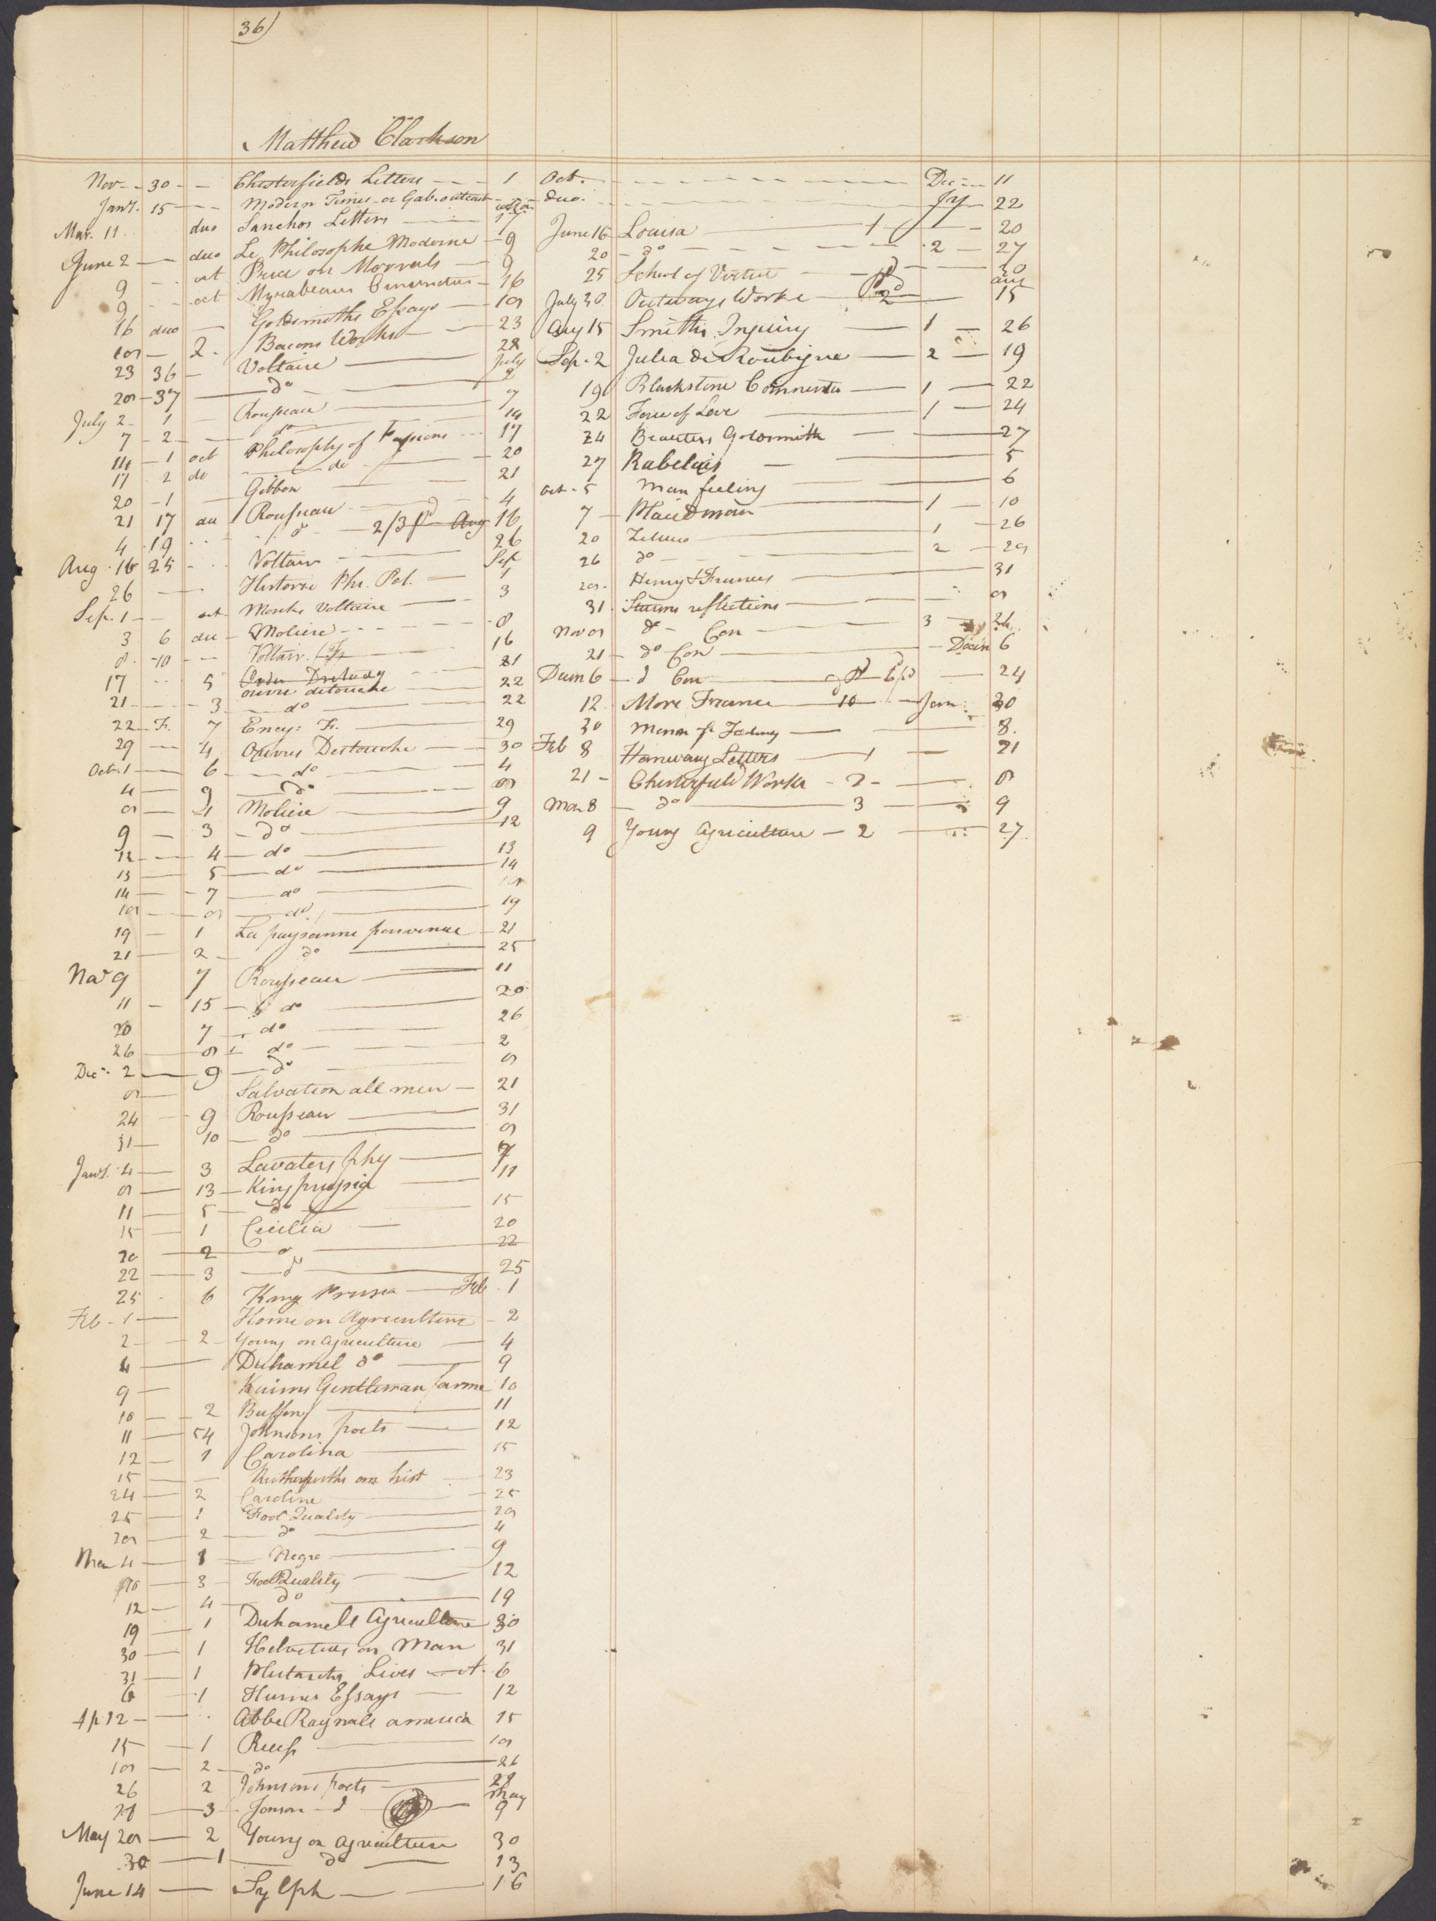 36)
Matthew Clarkson
Nov 30 Chesterfields Letters 1
Jany. 15 Modern Times or Gab. outcast
Mar. 11 duo Sanchos Letters 17
June 2 duo Le Philosophe Moderne 9
9 oct Price on Morrals 9
9 oct Myrabeaus 16
16 duo Goldsmiths Essays 18
18 2 Bacons Works 23
23 36 Voltaire 28
28 37 do July 2
July 2 1 Rousseau 7
7 2 do 14
14 1 oct Philosophy of Passions 17
17 2 do do 20
20 1 Gibbon 21
21 17 du Rousseau 4
4 19 do 2/3 pd Aug 16
Aug 16 25 Voltair 26
26 Historie Phi. Pol. Sept 1
Sep. 1 oct Monks Voltaire 3
3 6 du Moliere 8
8 10 Voltair Fr 16
17 5 ouvre detouche 21
21 3 do 22
22 Fr. 7 Ency: Fr. 22
29 4 Ouvres Destouche 29
Oct. 1 6 do 30
4 9 do 4
8 1 Moliere 8
9 3 do 9
12 4 do 12
13 5 do 13
14 7 do 14
18 8 do 18
19 1 La paysanne parvenue 19
21 2 do 21
25
Nov 9 7 Rousseau 11
11 15 do 20
20 7 do 26
26 8 do 2
Dec 2 9 do 8
8 Salvation all men 21
24 9 Rousseau 31
31 10 do 8
Jany. 4 3 Lavaters phy 7
8 13 King prussia 11
11 5 do 15
15 1 Cicilia 20
20 2 do 22
22 3 do 25
25 6 King Prusia Feb. 1
Feb 1 Home on Agriculture 2
2 2 Young on agriculture 4
4 Duhamel do 9
9 Kaims Gentleman farme 10
10 2 Buffons 11
11 54 Johnsons poets 12
12 1 Carolina 15
15 on hist 23
24 2 Caroline 25
25 1 Fool Quality 28
28 2 do 4
Mar 4 1 Negro 9
10 3 Fool Quality 12
12 4 do 19
19 1 Duhamels Agriculture 30
30 1 Helvetius on Man 31
31 1 Plutarchs Lives 6
6 1 Humes Essays 12
Ap 12 Abbe Raynals america 15
15 1 Recess 18
18 2 do 26
26 2 Johnsons poets 28
28 3 Jonson d May 9
May 28 2 Young on agriculture 30
30 1 do 13
June 14 Sylph 16
Oct. Dec 11
duo. Jy 22
June 16 Louisa 1 20
20 do 2 27
25 School of Virtue 30
July 30 Outways Works Pd 2 aug 15
Aug 15 Smiths Inquiry 1 26
Sep. 2 Julia de Roubigne 2 19
19 Blackstone Comments 1 22
22 Force of Love 1 24
24 Beauties Goldsmith 27
27 Rabelais 5
Oct. 5 Man feeling 6
7 Placid man 1 10
20 Zeluco 1 26
26 do 2 28
28 Henry & Frances 31
31 Sturms reflections 8
Nov 8 do Con 3 24
21 do Con Decem 6
Decem 6 d Con 24
12 More France 10 Janr. 30
30 8
Feb 8 Hanway Letters 1 21
21 Chesterfield Works 2 8
Mar 8 do 3 9
9 Young Agriculture 2 27